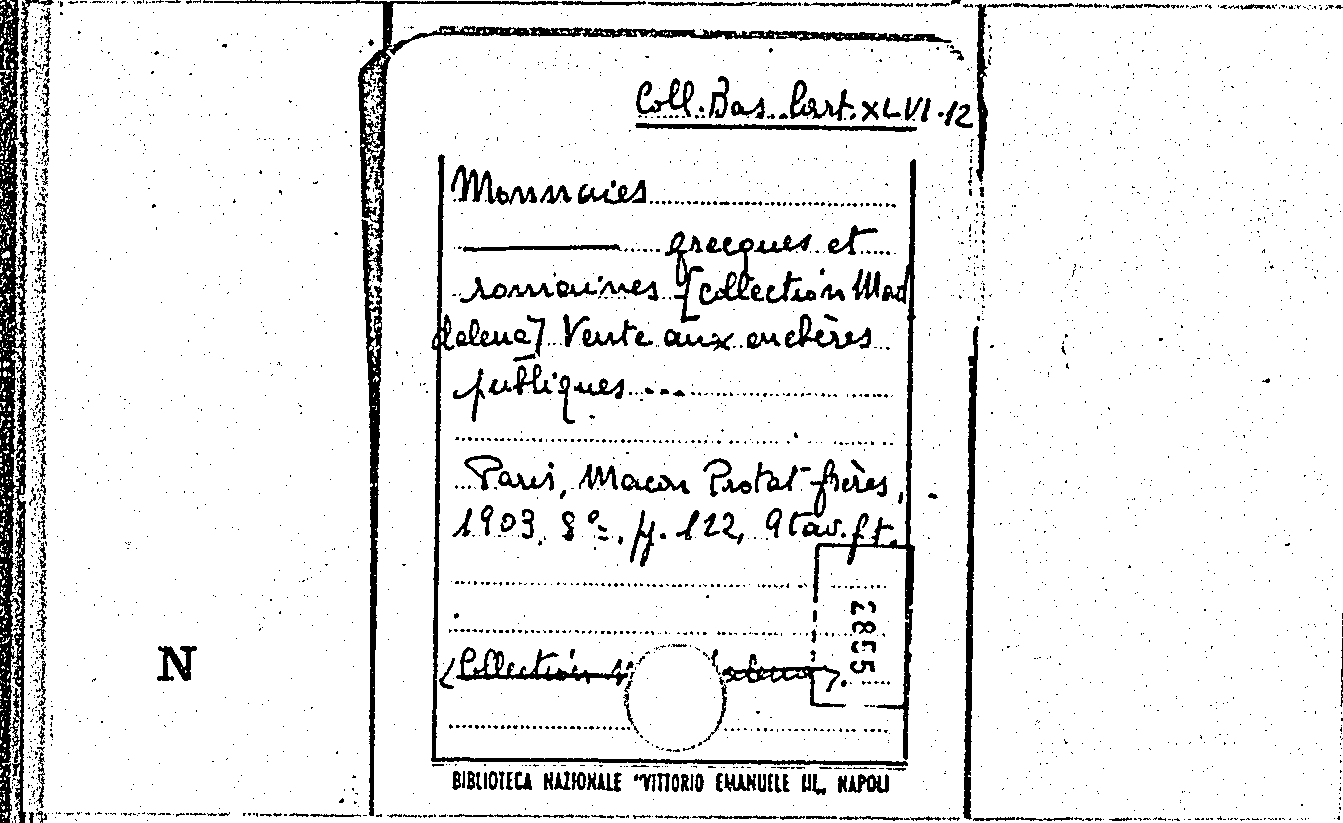 Coll. Bas. Cart. XLVI. 12
Monnaies
grecques et
romaines [collection Mad
dalena] Vente aux enchères
publiques...
Paris, Macon Protat frères,
1903, 8º, p. 122, 9 tav. f. t.
2855
(Collection
N
BIBLIOTECA NAZIONALE "VITTORIO EMANUELE III„ NAPOLI